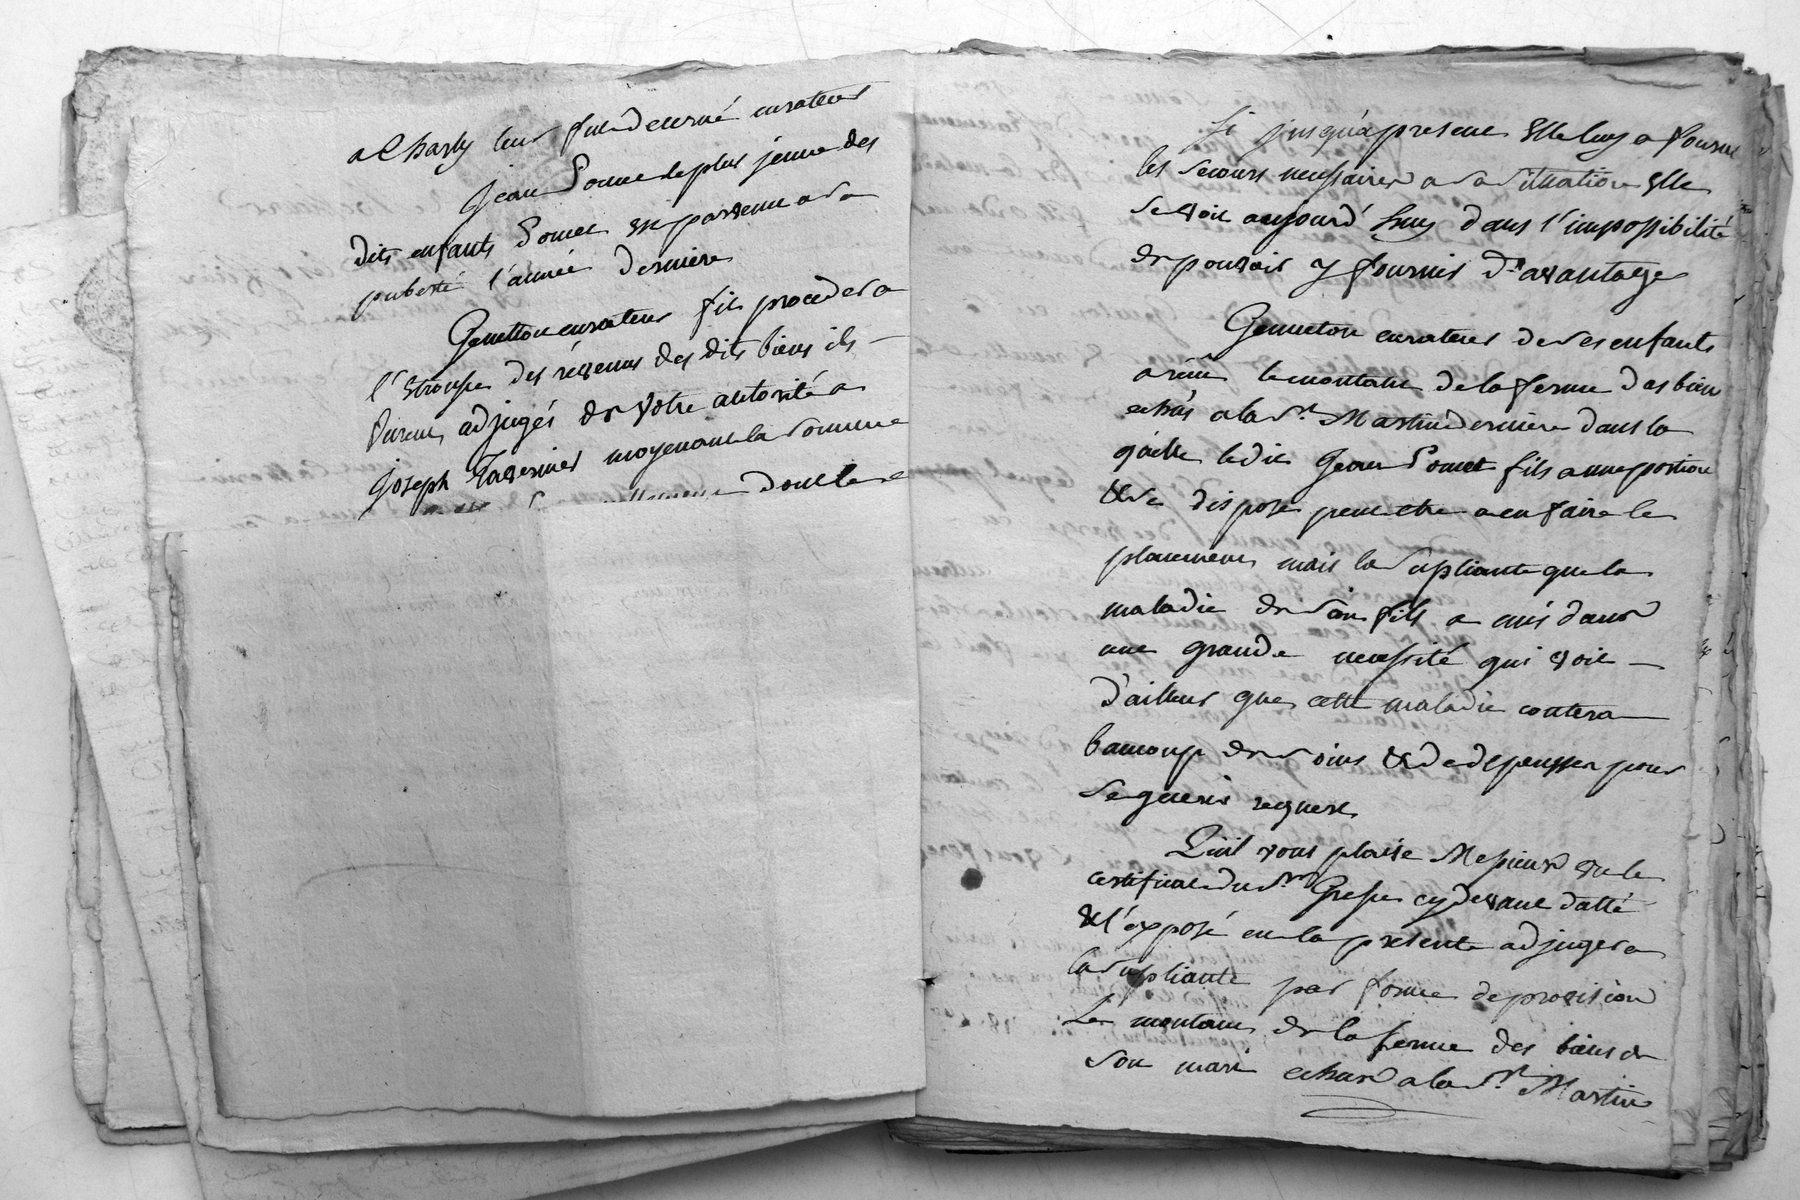 a Charly leur fut decerné curateur
Jean Pomet le plus jeune des
dits enfants Pomet est parvenu a sa
puberté l'année derniere
Genetton curateur fit proceder a
l'etrousse des révenus des dits biens ils
furent adjugés de votre autorité a
Joseph Tavernier moyenant la somme
dont le
Si jusqu'a present Elle luy a fourni
les secours necessaires a sa situation Elle
se voit aujourd'huy dans l'impossibilité
de pouvoir y fournir d'avantage
Genneton curateur de ses enfants
a recu le montant de la ferme des biens
echus a la St. Martin derniere dans la
quelle le dit Jean Pomet fils a une portion
& se dispose peut etre a en faire le
placement mais la supliante que la
maladie de son fils a mis dans
une grande necessité qui voit
d'ailleur que cette maladie coutera
baucoup de soins & de depenses pour
se guerir requert
Qu'il vous plaise Messieurs vu le
certificat du Sr. cy devant datté
& l'exposé en la presente adjuger a
la supliante par forme de provision
Le montant de la ferme des biens de
son mari echue a la St. Martin